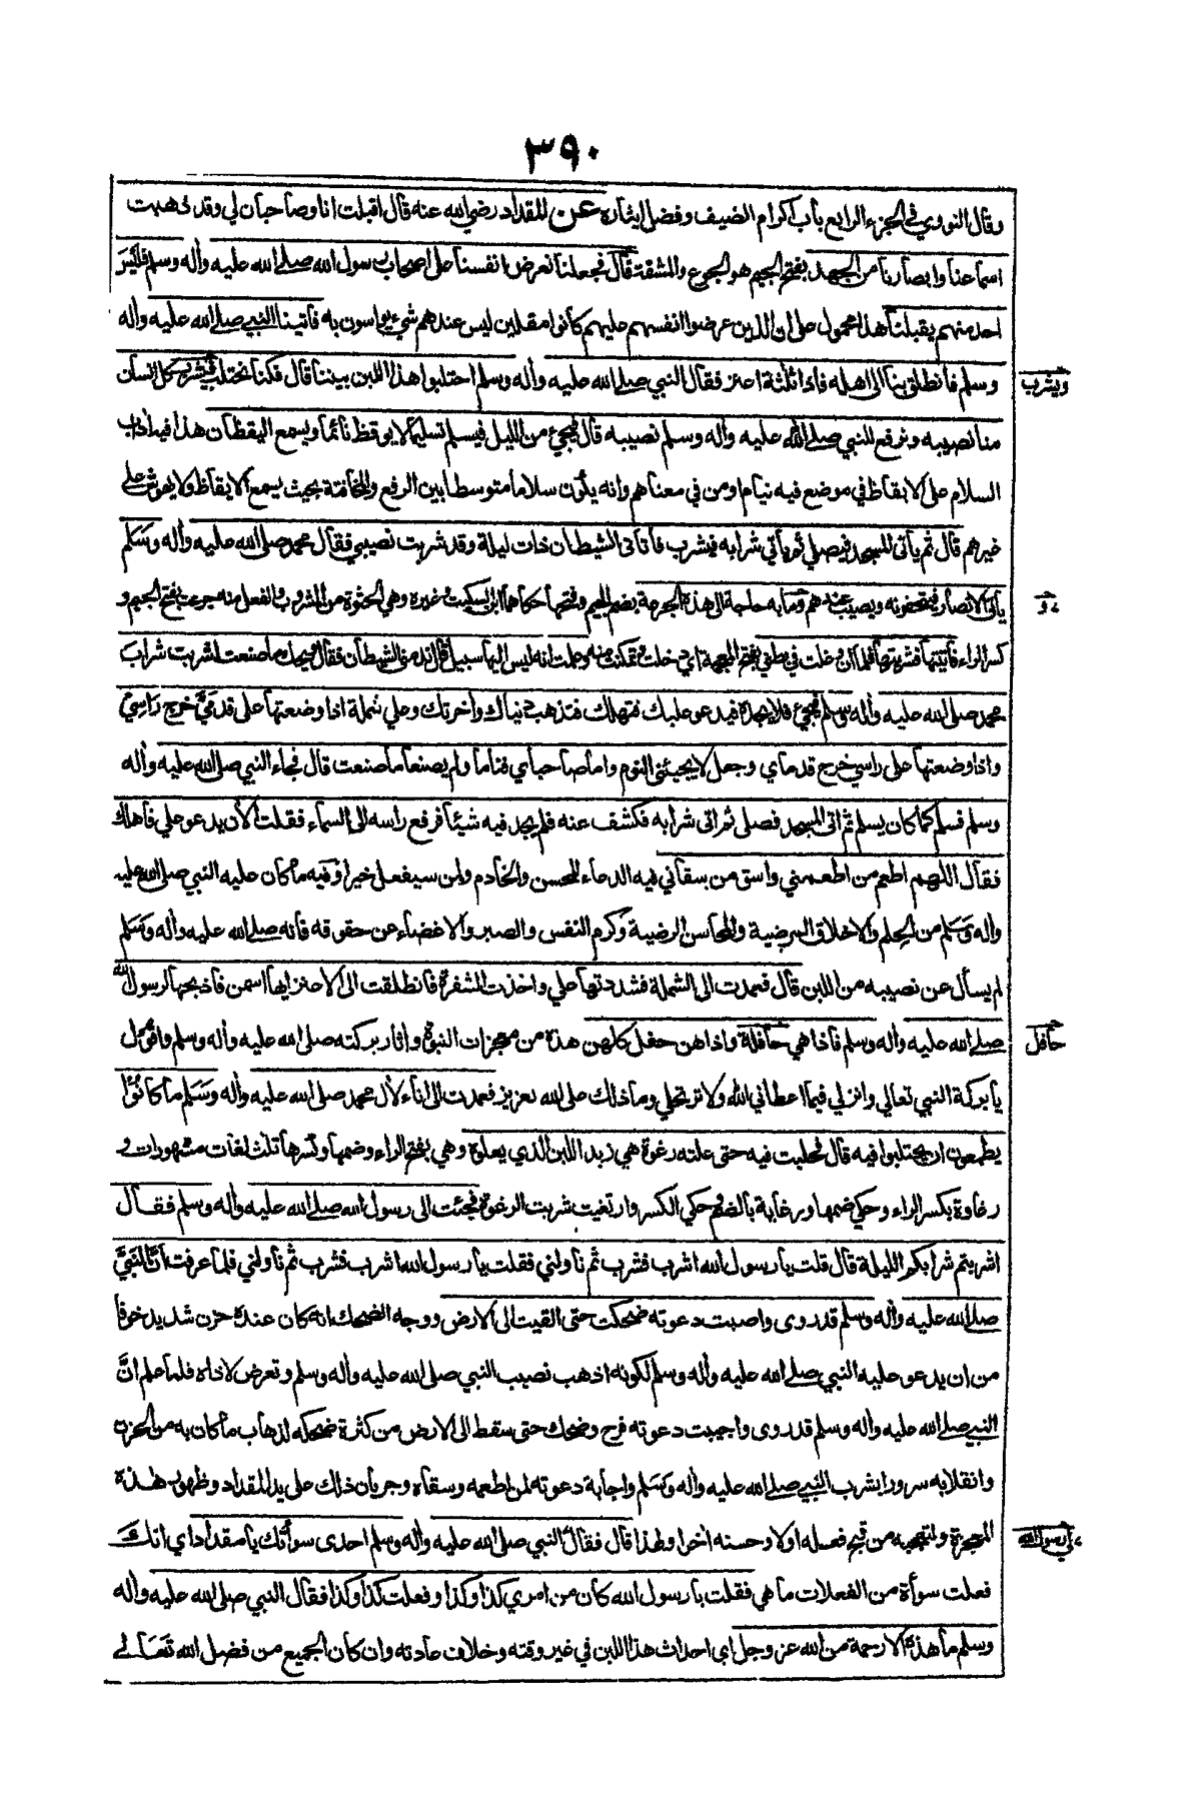 ٣٩٠
وقال النووي في الجزء الرابع باب اكرام الضيف وفضل ايثاره عن المقداد رضي الله عنه قال اقبلت انا وصاحبان لي وقد ذهبت
اسماعنا وابصارنا من الجهد بفتح الجيم هو الجوع والمشقة قال فجعلنا نعرض انفسنا على اصحاب رسول الله صلى الله عليه واله وسلم فليس
احد منهم يقبلنا هذا محمول على ان الذين عرضوا انفسهم عليهم كانوا مقلين ليس عندهم شيء يواسون به فاتينا النبي صلى الله عليه واله
وسلم فانطلق بنا الى اهله فاذا ثلثة اعنز فقال النبي صلى الله عليه واله وسلم احتلبوا هذا اللبن بيننا قال فكنا نحتلب فيشرب كل انسان
ويشرب
منا نصيبه ونرفع للنبي صلى الله عليه واله وسلم نصيبه قال فيجيء من الليل فيسلم تسليما لا يوقظ نائما ويسمع اليقظان هذا فيه اداب
السلام على الايقاظ في موضع فيه نيام او من في معناهم وانه يكون سلاما متوسطا بين الرفع والمخافتة بحيث يسمع الايقاظ ولا يهوش على
غيرهم قال ثم يأتى المسجد فيصلي ثم يأتي شرابه فيشرب فاتانى الشيطان ذات ليلة وقد شربت نصيبي فقال محمد صلى الله عليه واله وسلم
يأتى الانصار فيتحفونه ويصيب عندهم وما به حاجة الى هذه الجرعة بضم الجيم وفتحها حكاهما ابن السكيت وغيره وهي الحثوة من المشروب والفعل منه جرعت بفتح الجيم و
و
كسر الراء فأتيتها فشربتها فلما ان دخلت في بطني بفتح المعجمة اي دخلت وتمكنت منه وعلمت انه ليس اليها سبيل قال ندمنى الشيطان فقال ويحك ما صنعت اشربت شراب
محمد صلى الله عليه واله وسلم فيجيء فلا يجده فيدعو عليك فتهلك فتذهب دنياك واخرتك وعلي شملة اذا وضعتها على قدمي خرج راسي
واذا وضعتها على راسي خرج قدماي وجعل لا يجيئني النوم واما صاحباي فناما ولم يصنعا ما صنعت قال فجاء النبي صلى الله عليه واله
وسلم فسلم كما كان يسلم ثم اتى المسجد فصلى ثم اتى شرابه فكشف عنه فلم يجد فيه شيئا فرفع راسه الى السماء فقلت الأن يدعو علي فأهلك
فقال اللهم اطعم من اطعمني واسق من سقاني فيه الدعاء للمحسن والخادم ولمن سيفعل خيرا وفيه ما كان عليه النبي صلى الله عليه
واله وسلم من الحلم والاخلاق المرضية والمحاسن الرضية وكرم النفس والصبر والاغضاء عن حقوقه فانه صلى الله عليه واله وسلم
لم يسأل عن نصيبه من اللبن قال فعمدت الى الشملة فشددتها علي واخذت الشفرة فانطلقت الى الاعنز ايها اسمن فاذبحها لرسول الله
صلى الله عليه واله وسلم فاذا هي حافلة واذا هن حفل كلهن هذه من معجزات النبوة واثار بركته صلى الله عليه واله وسلم واقول
حافل
يا بركة النبي تعالي وانزلي فيما اعطاني الله ولا ترتحلي وما ذلك على الله بعزيز فعمدت الى اناء لال محمد صلى الله عليه واله وسلم ما كانوا
يطمعون ان يحتلبوا فيه قال فحلبت فيه حتى علته رغوة هي زبد اللبن الذي يعلوه وهي بفتح الراء وضمها وكسرها ثلث لغات مشهورات و
رغاوة بكسر الراء وحكي ضمها ورغاية بالضم وحكي الكسر وارتغيت شربت الرغوة فجئت الى رسول الله صلى الله عليه واله وسلم فقال
اشربتم شرابكم الليلة قال قلت يا رسول الله اشرب فشرب ثم ناولني فقلت يا رسول الله اشرب فشرب ثم ناولني فلما عرفت ان النبي
صلى الله عليه واله وسلم قد روى واصبت دعوته ضحكت حتى القيت الى الارض ووجه الضحك انه كان عنده حزن شديد خوفا
من ان يدعو عليه النبي صلى الله عليه واله وسلم لكونه اذهب نصيب النبي صلى الله عليه واله وسلم وتعرض لاذاه فلما علم ان
النبي صلى الله عليه واله وسلم قد روى واجيبت دعوته فرح وضحك حتى سقط الى الارض من كثرة ضحكه لذهاب ما كان به من الحزن
وانقلابه سرورا بشرب النبي صلى الله عليه واله وسلم واجابة دعوته لمن اطعمه وسقاه وجريان ذلك على يد المقداد وظهور هذه
المعجزة ولتعجبه من قبح فعله اولا وحسنه اخرا ولهذا قال فقال النبي صلى الله عليه واله وسلم احدى سوأتك يا مقداد اي انك
فعلت سوأة من الفعلات ما هي فقلت يا رسول الله كان من امري كذا وكذا وفعلت كذا وكذا فقال النبي صلى الله عليه واله
وسلم ما هذه الا رحمة من الله عز وجل اى احداث هذا اللبن في غير وقته وخلاف عادته وان كان الجميع من فضل الله تعالى